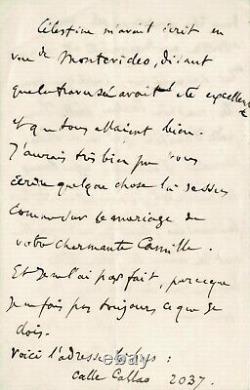 Célestine m'avait écrit en
vue de Montevideo, disant
que la traversée avait été excellente
et que tous allaient bien.
J'aurais très bien pu vous
écrire quelque chose là-dessus
comme sur le mariage de
votre charmante Camille.
Et je ne l'ai pas fait, parce que
je ne fais pas toujours ce que je
dois.
Voici l'adresse
calle Callao 2037.